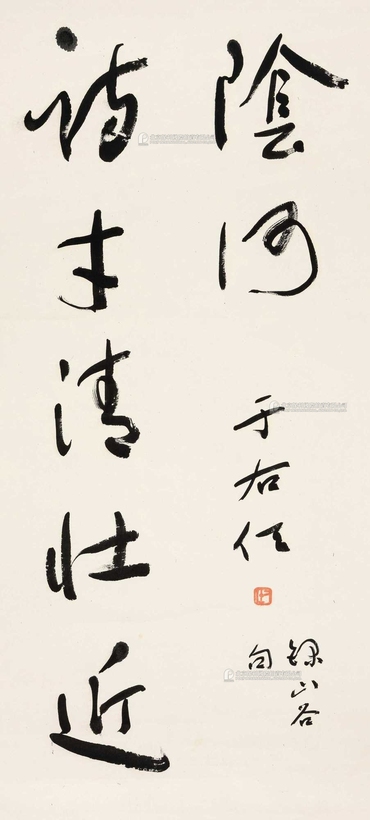 詩才清壯近
陰何
于右任
錄山谷
句